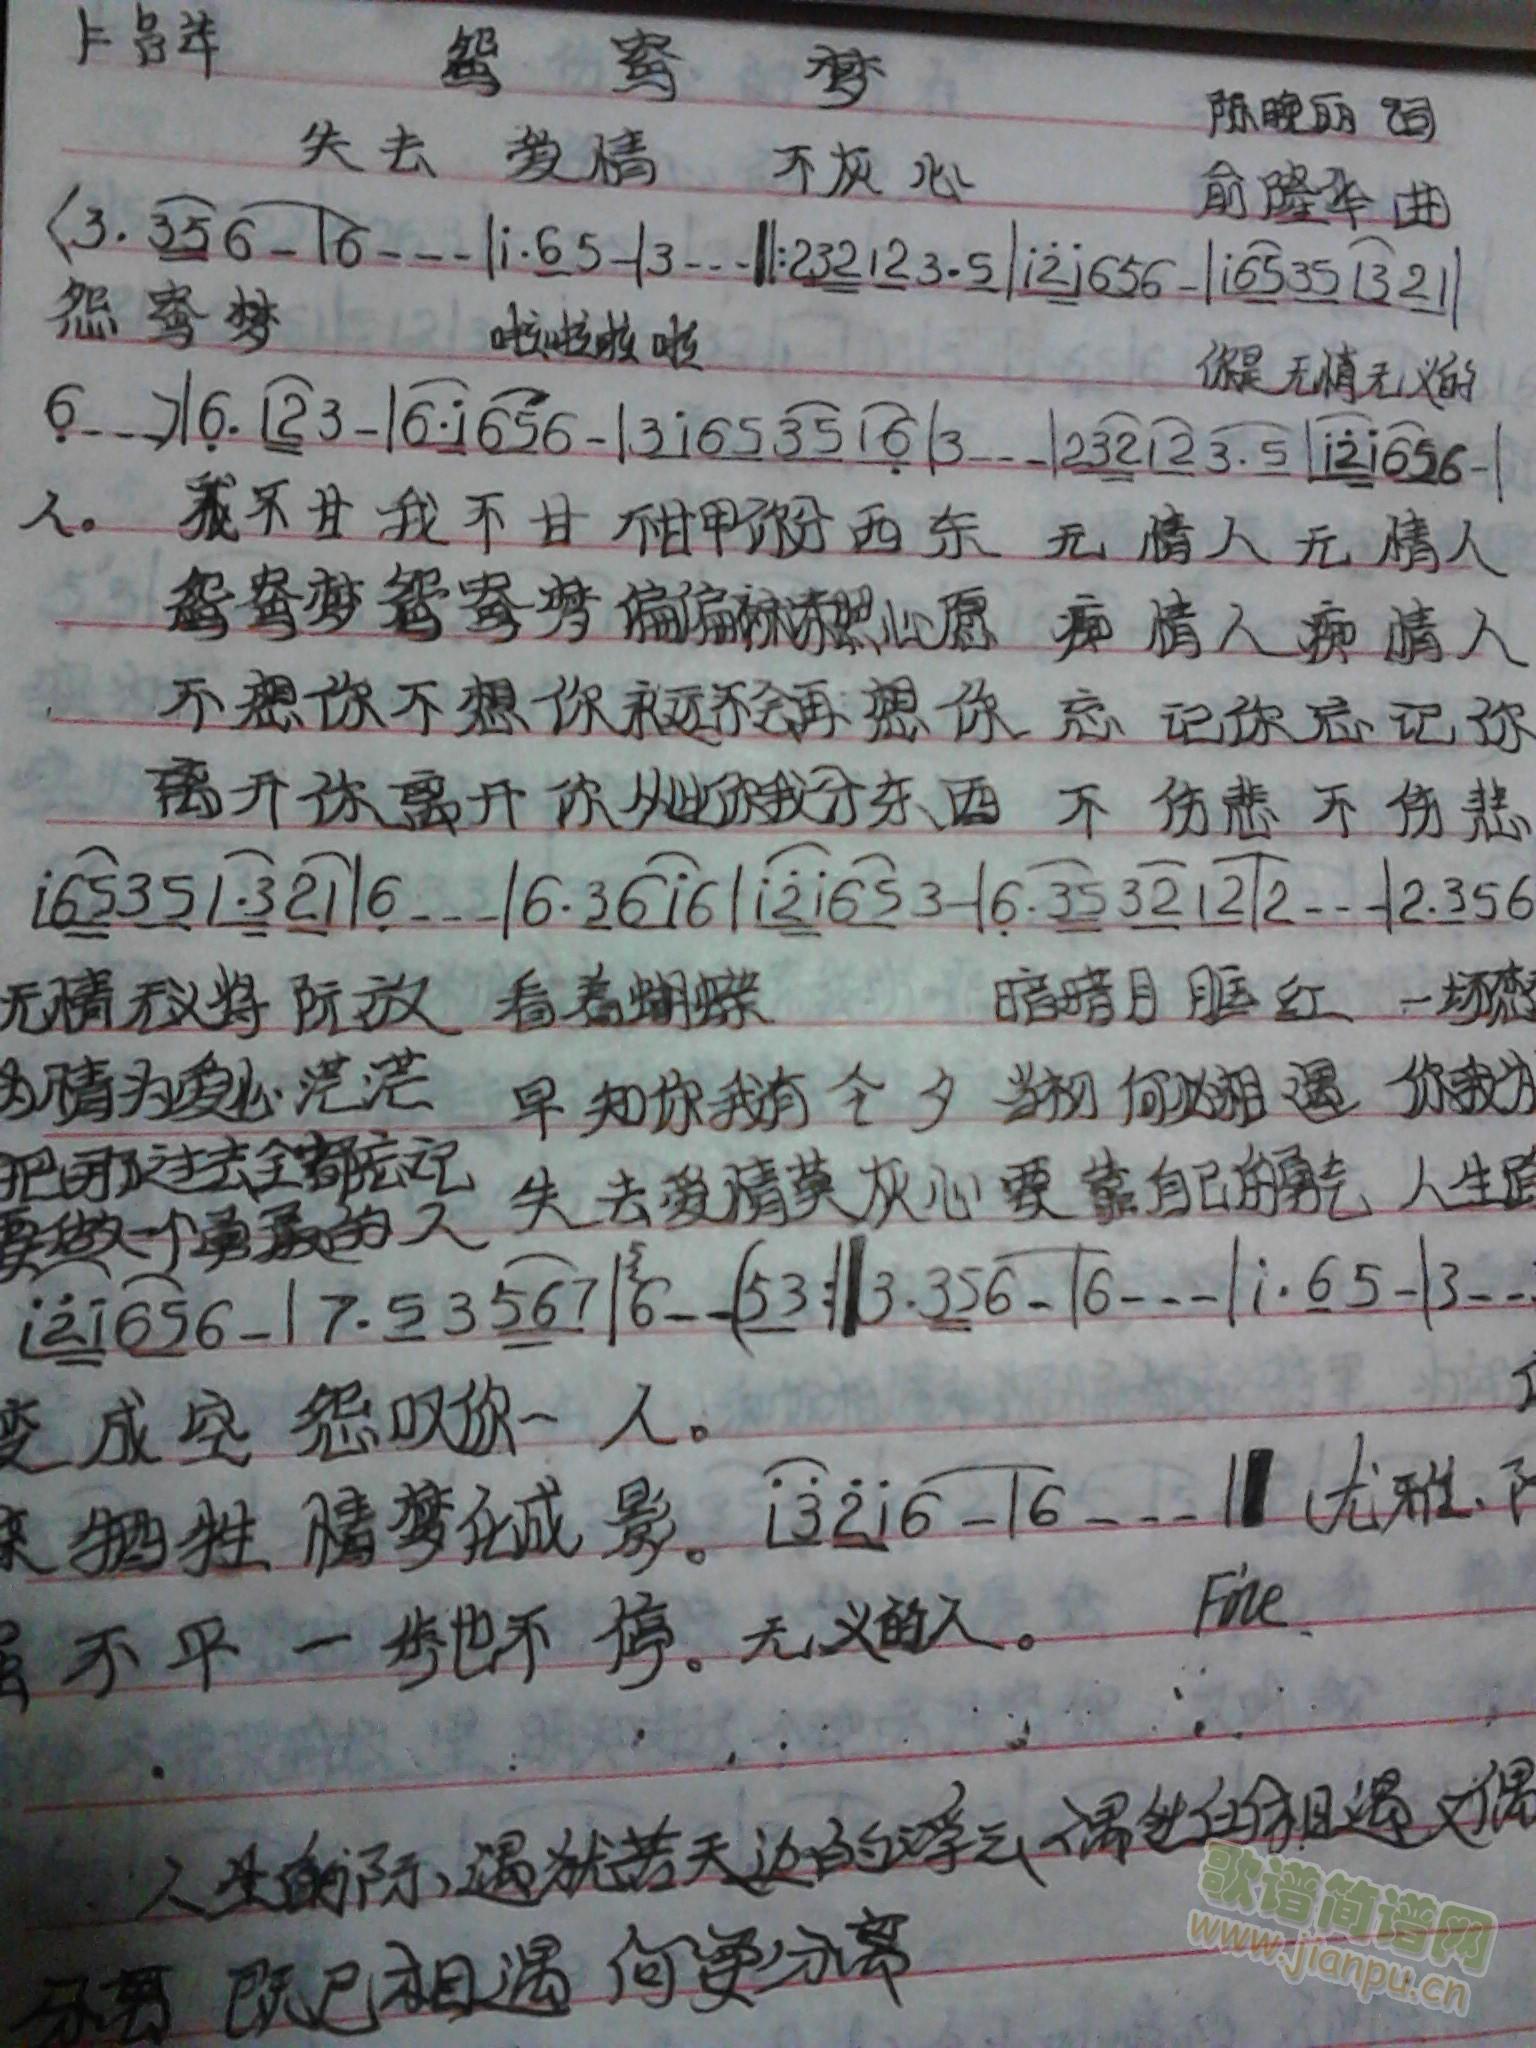 鸳 鸯 梦
陈晚丽 词
失去 爱情 不灰心
俞隆华 曲
3. 35 6 - | 6 - - - | i. 6 5 - | 3 - - - ‖: 232 12 3.5 | i2i 656 - | i65 35 13 21 |
怨鸯梦 啦啦啦啦 你是无情无义的
6 - - - ) | 6. 12 3 - | 6. i 656 - | 3i65 35 16 | 3 - - - | 232 12 3.5 | i2i 656 - |
人。 我不甘我不甘 你分西东 无情人无情人
鸳鸯梦鸳鸯梦偏偏 心愿 痴情人痴情人
不想你不想你永远不会再想你 忘记你忘记你
离开你离开你从此你我分东西 不伤悲不伤悲
i65 35 1.3 21 | 6 - - - | 6. 3 6i6 | i2i 65 3 - | 6. 35 32 12 | 2 - - - | 2.356
无情无义将 放 看着蝴蝶 暗暗月 红 一场
情为爱心茫茫 早知你我有今夕当初何必相遇 你我
把那过去全都忘记 失去爱情莫灰心要靠自己的勇气 人生
要做一个勇敢的人
i2i 656 - | 7. 5 3 567 | 6 - - (53 :‖ 3. 356 - | 6 - - - | i. 6 5 - | 3 - - -
变成空 怨叹你一人。
来牺牲 情梦化成影。 i32i6 - | 6 - - - ‖ (尤雅、
Fine
不平一步也不停。无义的人。
人生的际遇犹若天边的浮云 偶 相遇又偶
分离 既已相遇 何要分离
歌谱简谱网
www.jianpu.cn